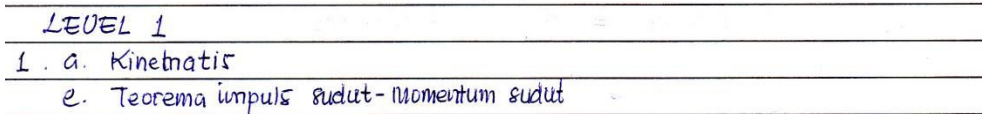 LEVEL 1
1. a. Kinematis
e. Teorema impuls sudut-momentum sudut